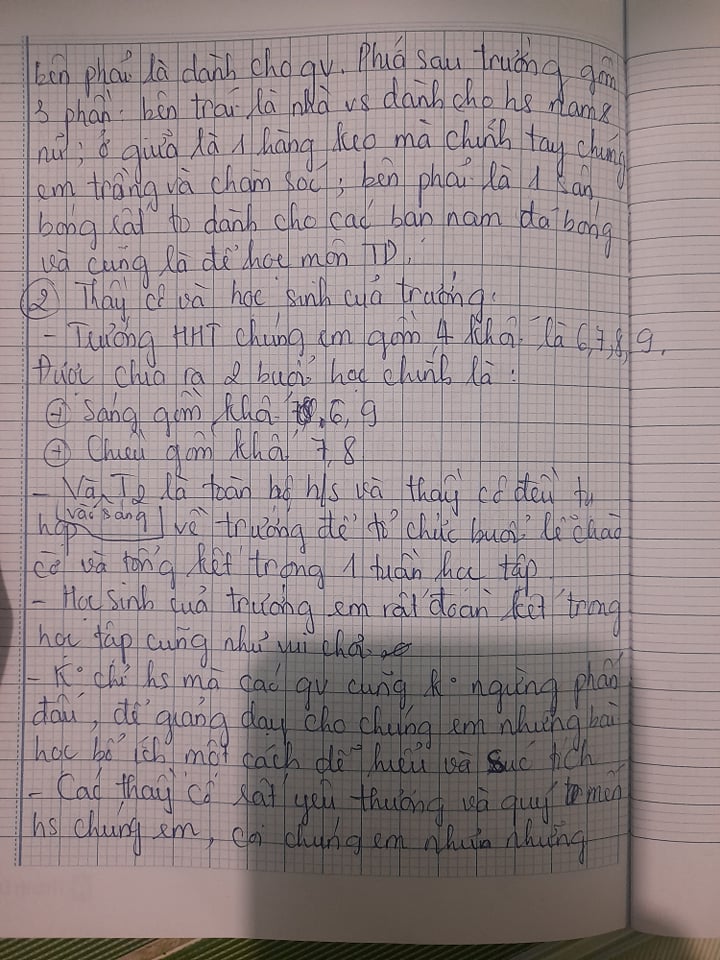 bên phải là dành cho gv. Phía sau trường gồm
3 phần: bên trái là nhà vs dành cho hs nam &
nữ; ở giữa là 1 hàng keo mà chính tay chúng
em trồng và chăm sóc; bên phải là 1 sân
bóng rất to dành cho các bạn nam đá bóng
và cũng là để học môn TD.
② Thầy cô và học sinh của trường.
- Trường HHT chúng em gồm 4 khối là 6,7,8,9.
Được chia ra 2 buổi học chính là:
⊕ Sáng gồm khối 6, 9
⊕ Chiều gồm khối 7, 8
- Và T2 là toàn bộ h/s và thầy cô đều tụ
họp (vào sáng) về trường để tổ chức buổi lễ chào
cờ và tổng kết trong 1 tuần học tập.
- Học sinh của trường em rất đoàn kết trong
học tập cũng như vui chơi.
- K° chỉ hs mà các gv cũng k° ngừng phấn
đấu, để giảng dạy cho chúng em những bài
học bổ ích một cách dễ hiểu và súc tích
- Các thầy cô rất yêu thương và quý mến
hs chúng em, coi chúng em như những